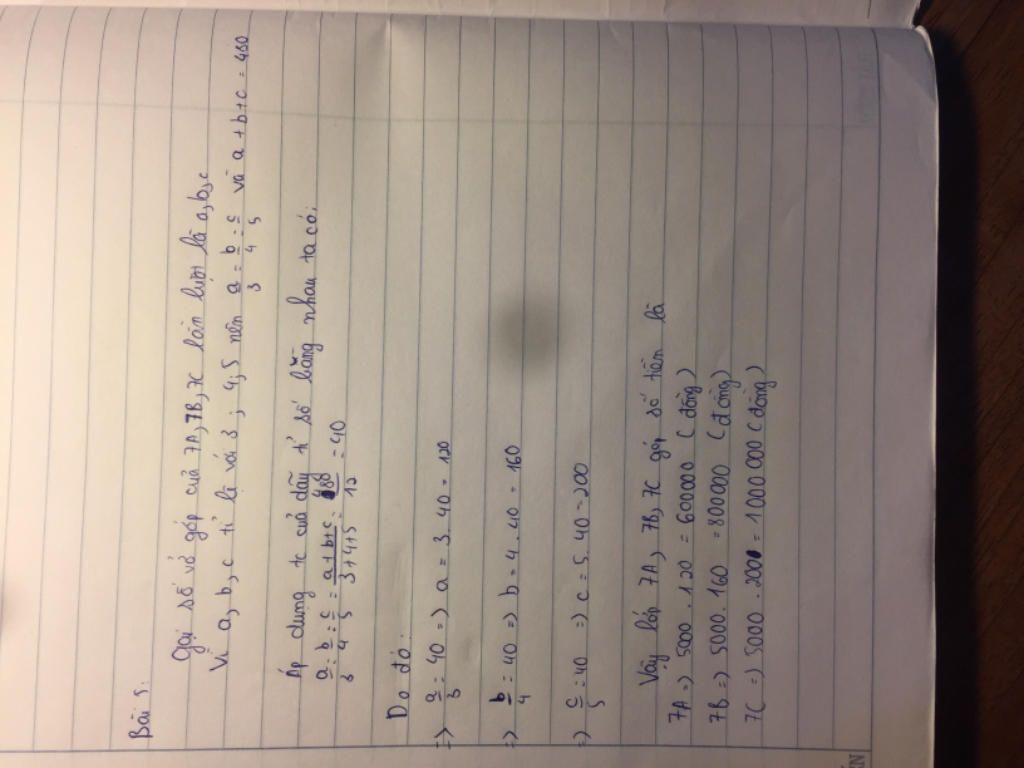 Bài 5:
Gọi số vở góp của 7A, 7B, 7C lần lượt là a, b, c
Vì a, b, c tỉ lệ với 3; 4, 5 nên a/3 = b/4 = c/5 và a + b + c = 480
Áp dụng tc của dãy tỉ số bằng nhau ta có:
a/3 = b/4 = c/5 = (a+b+c)/(3+4+5) = 480/12 = 40
Do đó:
=> a/3 = 40 => a = 3. 40 = 120
=> b/4 = 40 => b = 4. 40 = 160
=> c/5 = 40 => c = 5. 40 = 200
Vậy lớp 7A, 7B, 7C góp số tiền là
7A => 5000 . 120 = 600000 (đồng)
7B => 5000. 160 = 800000 (đồng)
7C => 5000 . 200 = 1000 000 (đồng)